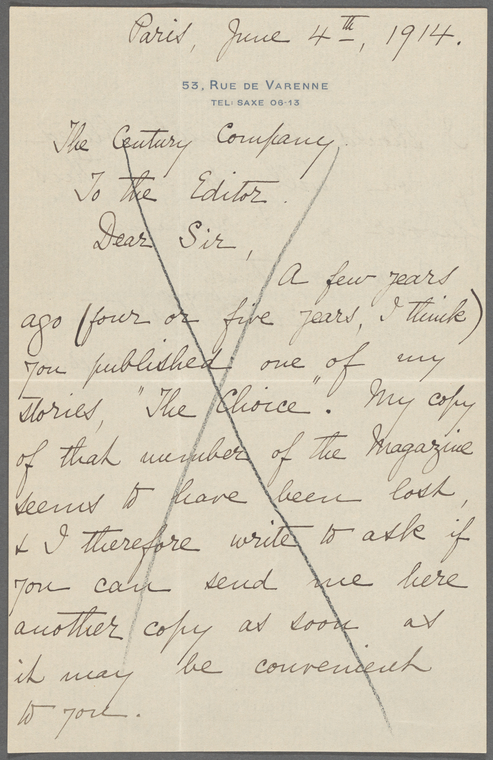 Paris, June 4th, 1914.
53, Rue de Varenne
Tel: Saxe 06-13
The Century Company.
To the Editor.
Dear Sir,
A few years
ago (four or five years, I think)
you published one of my
stories, "The Choice". My copy
of that number of the Magazine
seems to have been lost,
& I therefore write to ask if
you can send me here
another copy as soon as
it may be convenient
to you.